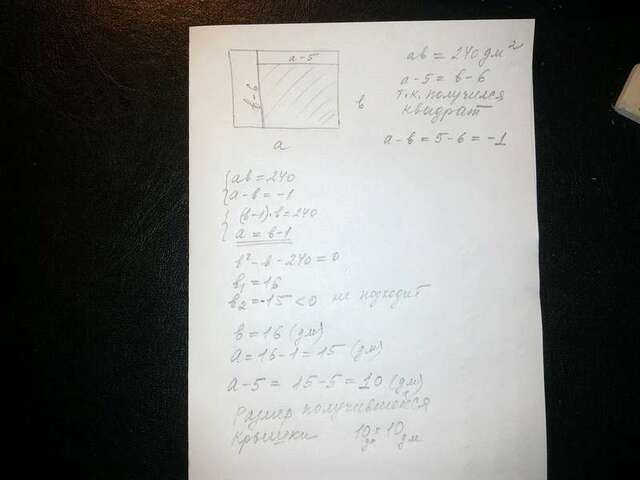 a-5
b-6
b
a
ab = 240 дм²
a-5 = b-6
т.к. получился
квадрат
a-b = 5-6 = -1
ab = 240
a-b = -1
(b-1)·b = 240
a = b-1
b²-b-240=0
b₁ = 16
b₂ = -15 < 0 не подходит
b = 16 (дм)
a = 16-1 = 15 (дм)
a-5 = 15-5 = 10 (дм)
Размер получившейся
крышки 10 дм × 10 дм